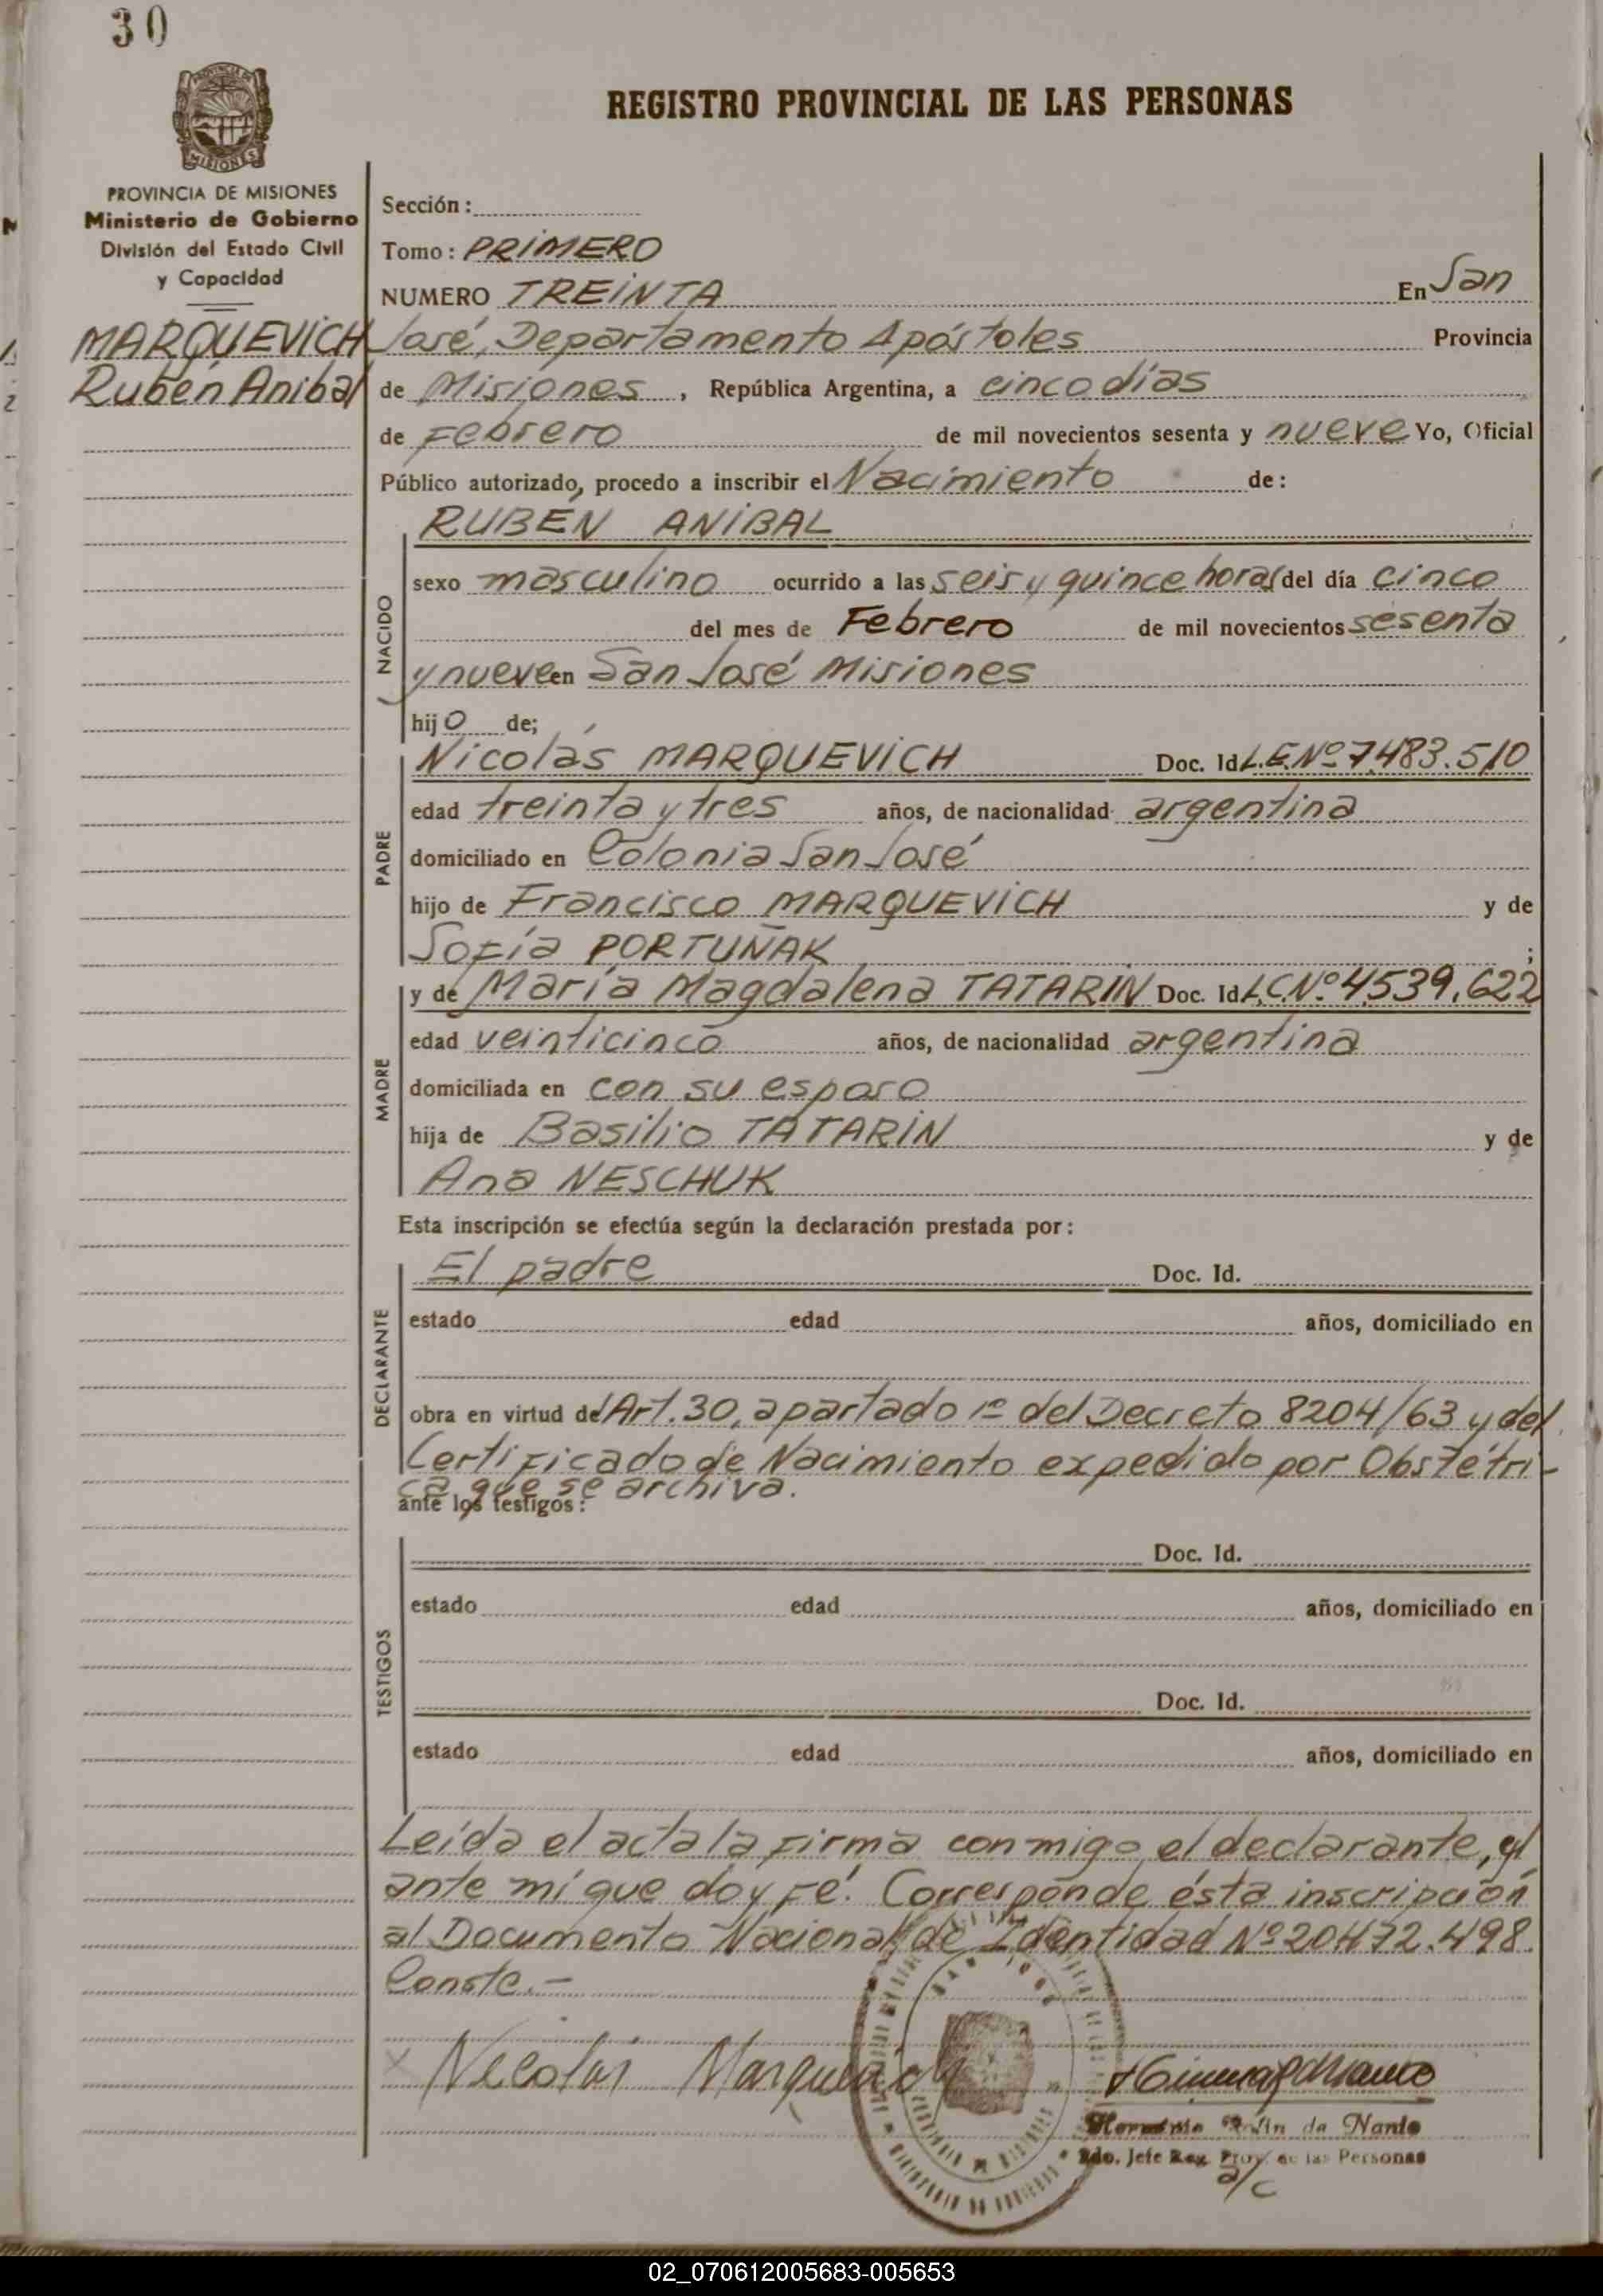 30
REGISTRO PROVINCIAL DE LAS PERSONAS
MISIONES
PROVINCIA DE MISIONES
Ministerio de Gobierno
División del Estado Civil
y Capacidad
MARQUEVICH
Rubén Anibal
Sección :
Tomo : PRIMERO
NUMERO TREINTA En San
José, Departamento Apóstoles Provincia
de Misiones , República Argentina, a cinco días
de Febrero de mil novecientos sesenta y nueve Yo, Oficial
Público autorizado, procedo a inscribir el Nacimiento de :
RUBÉN ANIBAL
NACIDO
sexo masculino ocurrido a las seis y quince horas del día cinco
del mes de Febrero de mil novecientos sesenta
y nueve en San José Misiones
hijo de;
PADRE
Nicolás MARQUEVICH Doc. Id L.E.Nº 7483.510
edad treinta y tres años, de nacionalidad argentina
domiciliado en Colonia San José
hijo de Francisco MARQUEVICH y de
Sofía PORTUÑAK ;
MADRE
y de María Magdalena TATARIN Doc. Id L.C.Nº 4539.622
edad veinticinco años, de nacionalidad argentina
domiciliada en con su esposo
hija de Basilio TATARIN y de
Ana NESCHUK
Esta inscripción se efectúa según la declaración prestada por :
DECLARANTE
El padre Doc. Id.
estado edad años, domiciliado en
obra en virtud del Art. 30, apartado 1º del Decreto 8204/63 y del
Certificado de Nacimiento expedido por Obstétri-
ca que se archiva.
ante los testigos :
TESTIGOS
Doc. Id.
estado edad años, domiciliado en
Doc. Id.
estado edad años, domiciliado en
Leída el acta la firma conmigo el declarante,
ante mí que doy fé. Corresponde ésta inscripción
al Documento Nacional de Identidad Nº 20472.498.
Conste.-
X Nicolás Marquevich
de Nardo
Jefe Reg. Prov. de las Personas
a/c
02_070612005683-005653